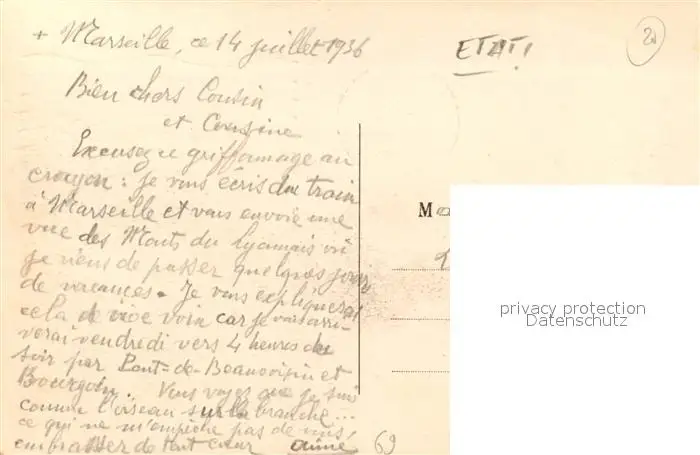 + Marseille, ce 14 juillet 1936
ETAT!
20
Bien chers Cousin
et Cousine
Excusez ce griffonnage au
crayon : je vous écris du train
à Marseille et vous envoie une
vue des Monts du Lyonnais où
je viens de passer quelques jours
de vacances. Je vous expliquerai
cela de vive voix car je vous arri-
verai vendredi vers 4 heures du
soir par Pont-de-Beauvoisin et
Bourgoin. Vous voyez que je suis
comme l'oiseau sur la branche...
ce qui ne m'empêche pas de vous
embrasser de tout cœur Aimé
69
M
privacy protection
Datenschutz